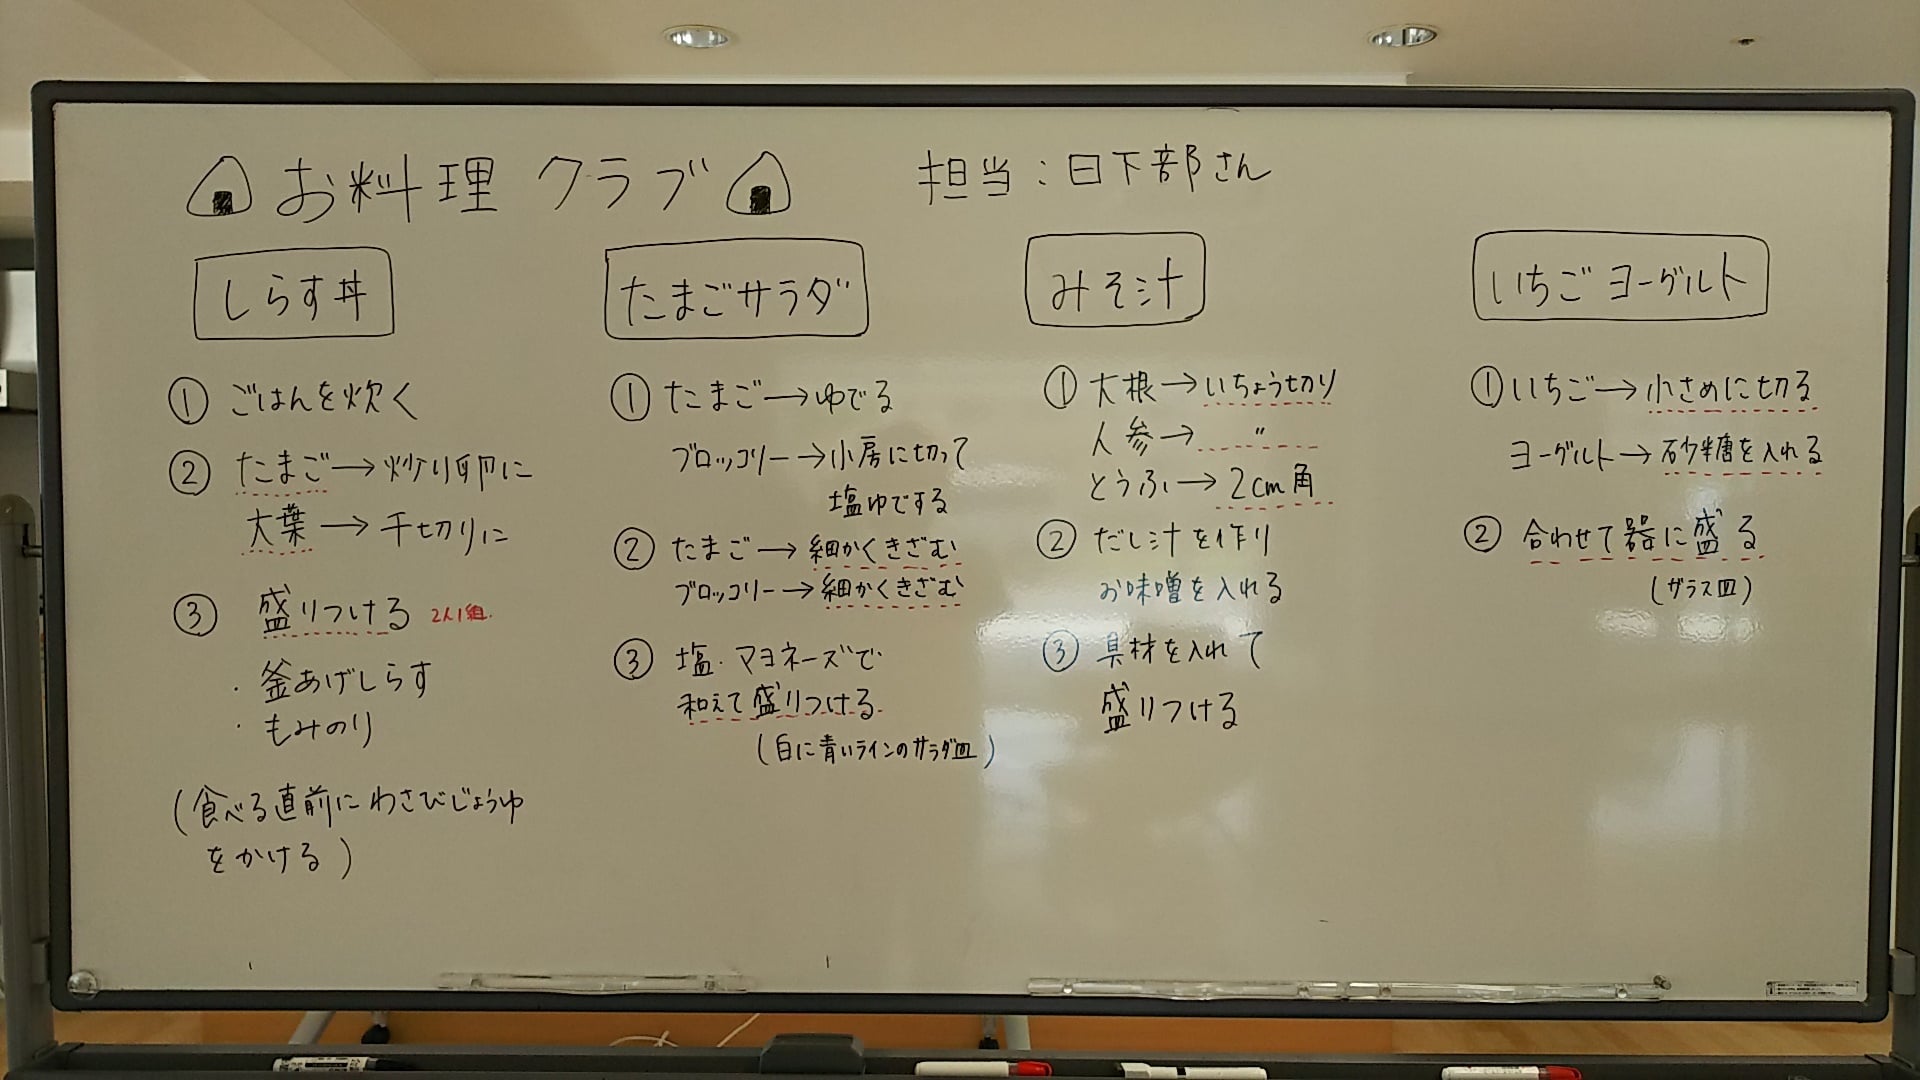 お料理クラブ 担当：日下部さん
しらす丼
① ごはんを炊く
② たまご→炒り卵に
大葉→千切りに
③ 盛りつける 2人1組.
・釜あげしらす
・もみのり
(食べる直前にわさびじょうゆ
をかける)
たまごサラダ
① たまご→ゆでる
ブロッコリー→小房に切って
塩ゆでする
② たまご→細かくきざむ
ブロッコリー→細かくきざむ
③ 塩・マヨネーズで
和えて盛りつける
(白に青いラインのサラダ皿)
みそ汁
① 大根→いちょう切り
人参→ 〃
とうふ→2cm角
② だし汁を作り
お味噌を入れる
③ 具材を入れて
盛りつける
いちごヨーグルト
① いちご→小さめに切る
ヨーグルト→砂糖を入れる
② 合わせて器に盛る
(ガラス皿)